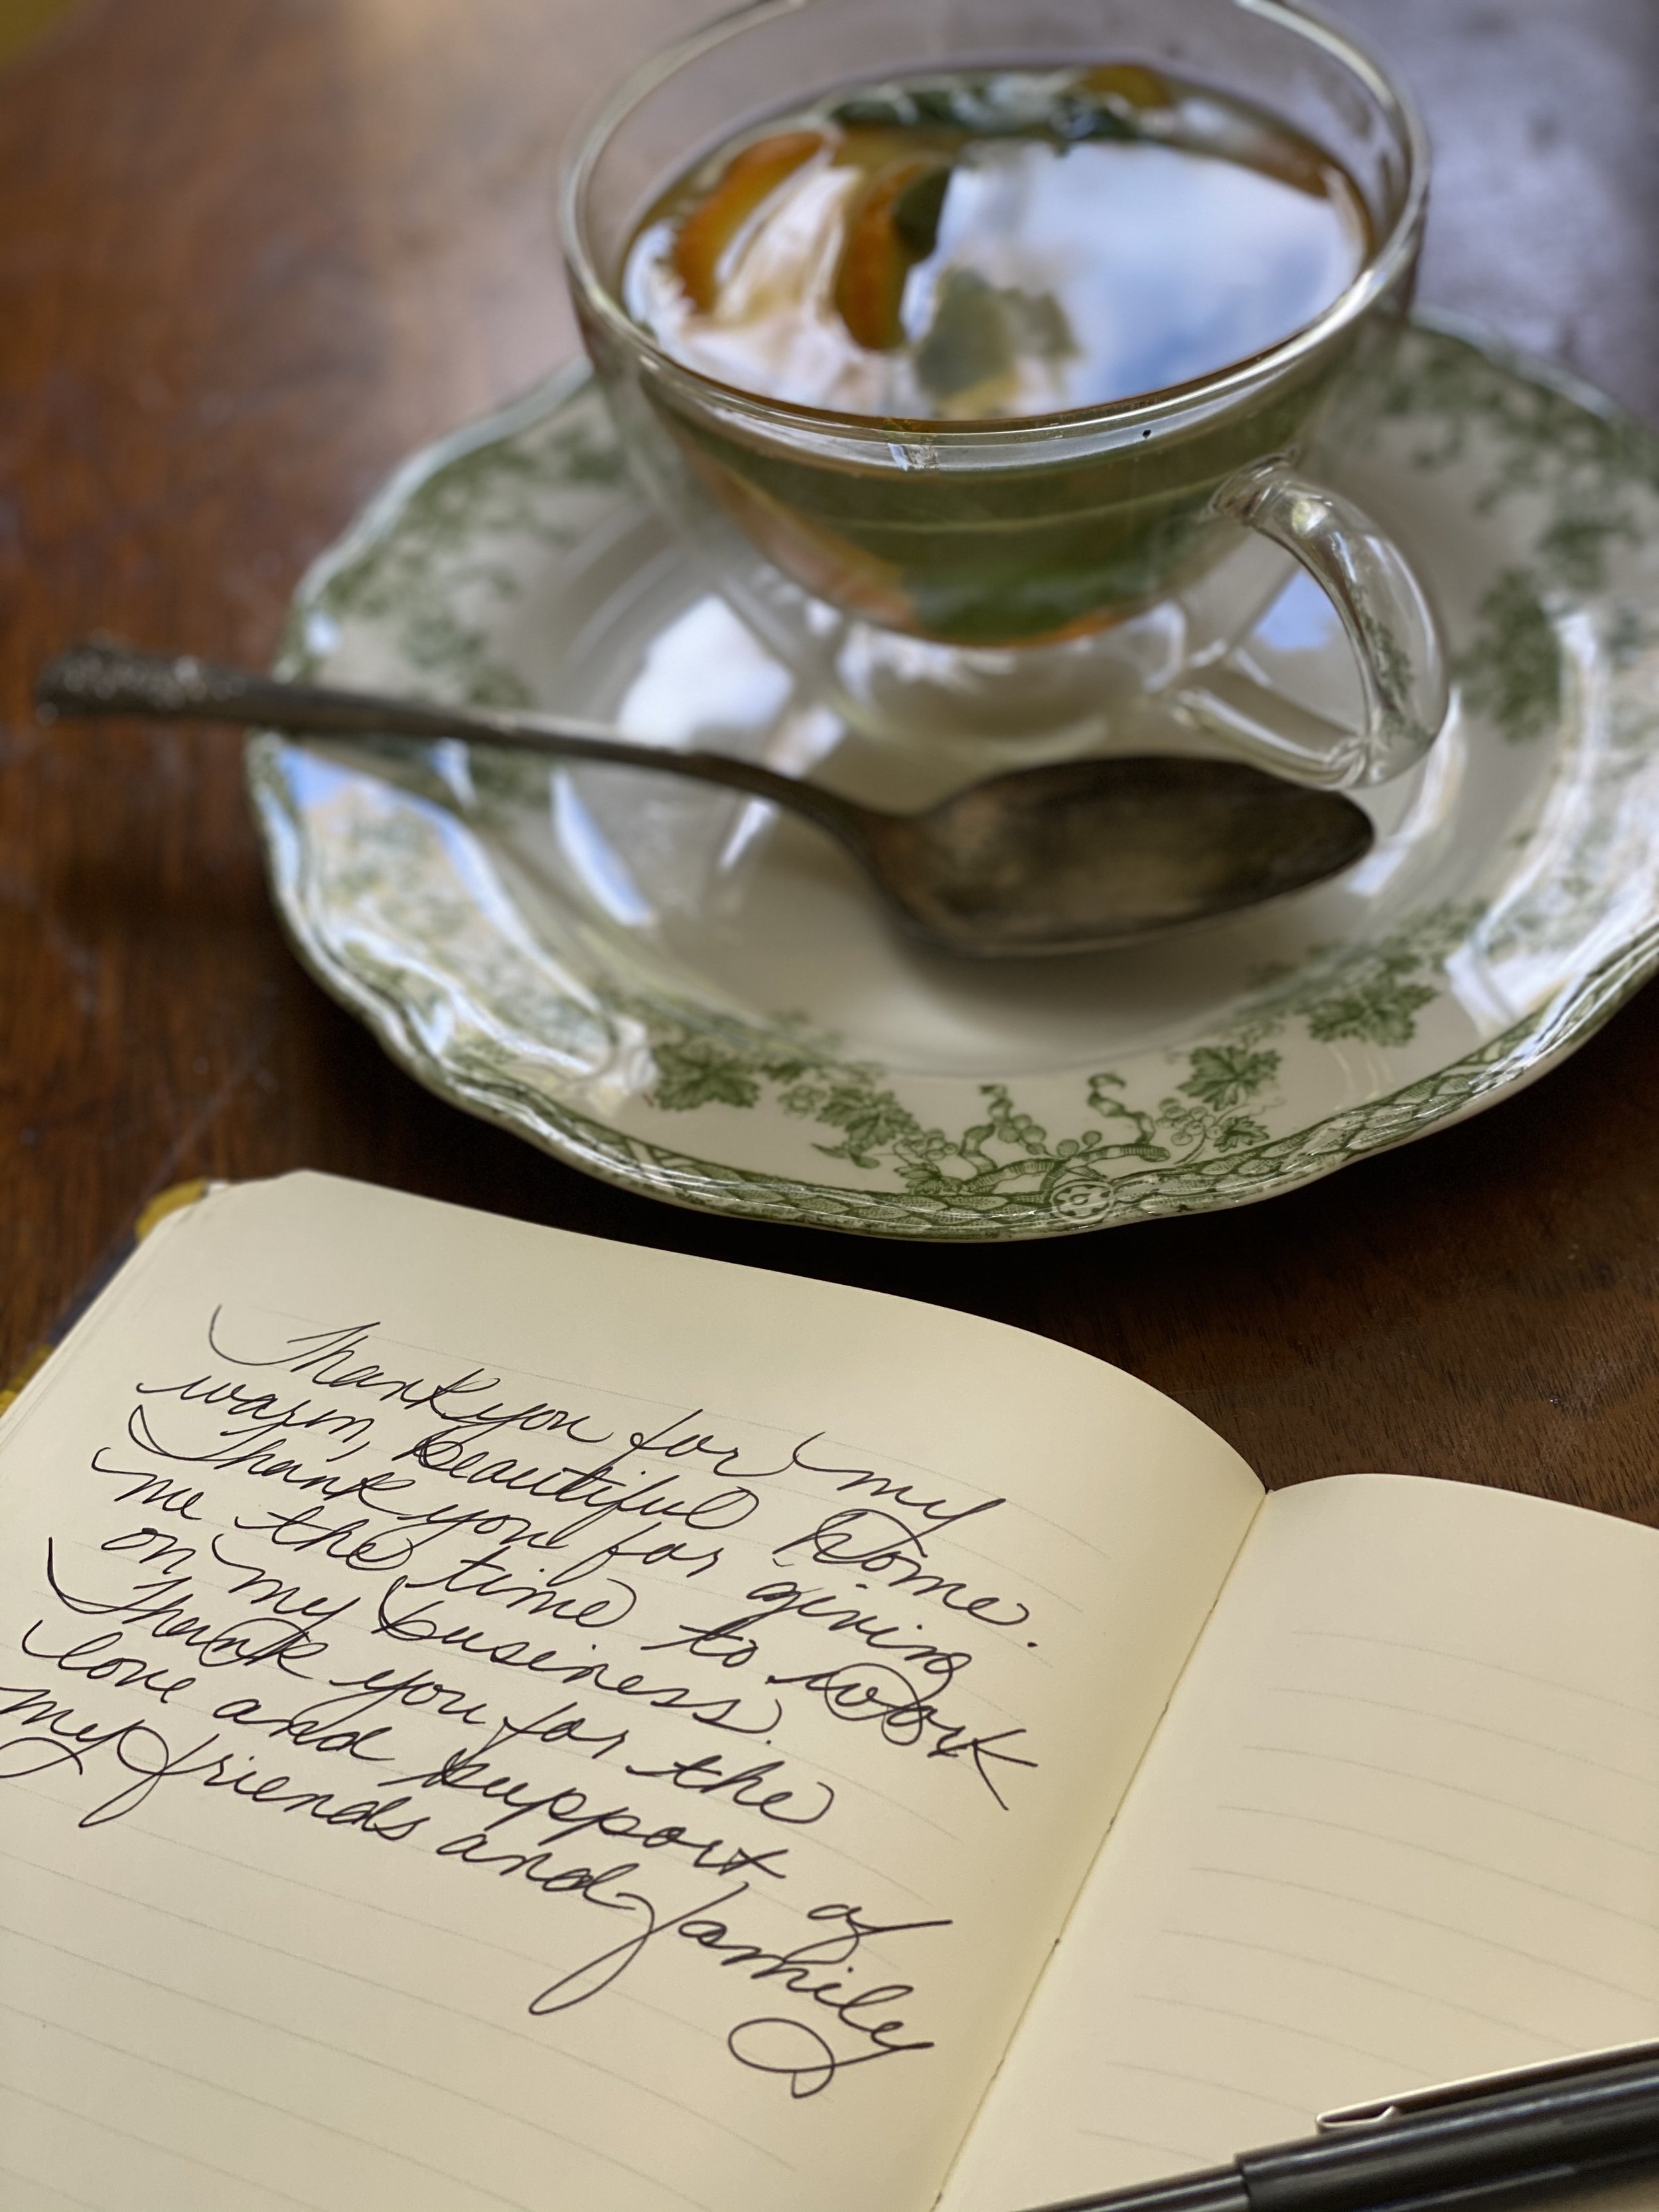 Thank you for my
warm, beautiful home.
Thank you for giving
me the time to work
on my business.
Thank you for the
love and support of
my friends and family